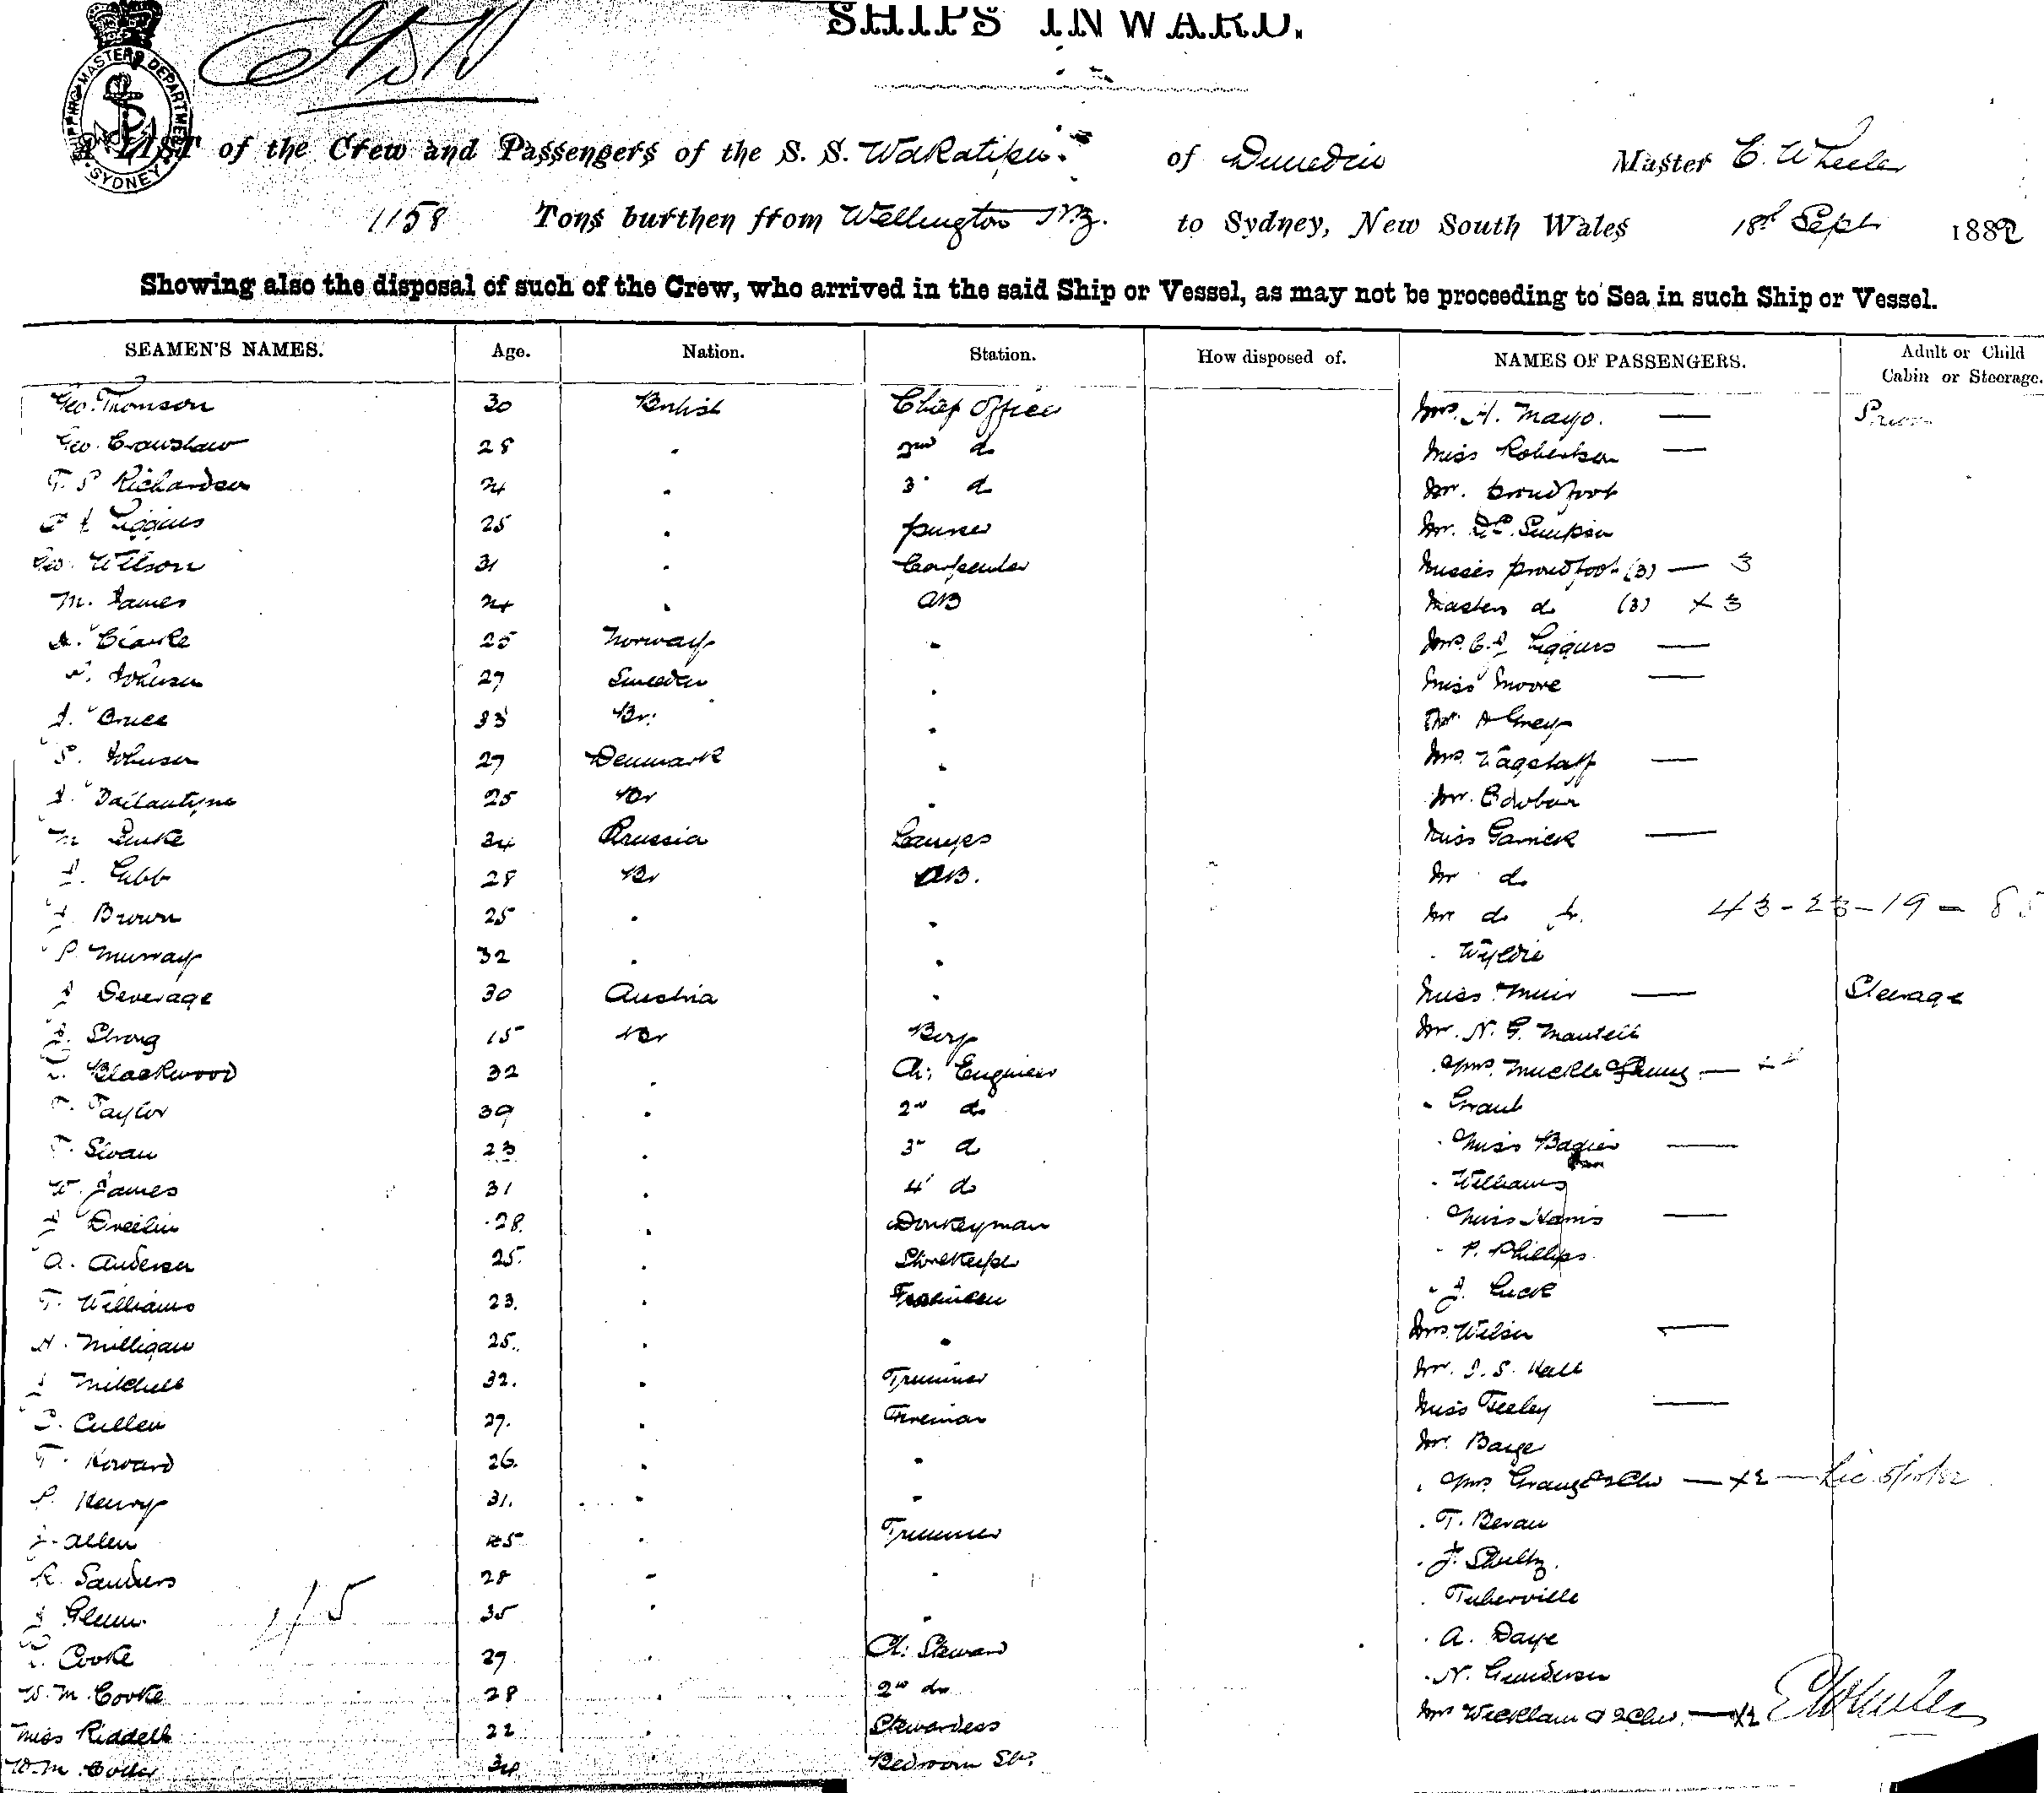 SHIPS INWARD.
SHIPPING MASTERS DEPARTMENT SYDNEY
A LIST of the Crew and Passengers of the S. S. Wakatipu. of Dunedin Master E. Wheeler
1158 Tons burthen from Wellington NZ. to Sydney, New South Wales 18th Sept 1882
Showing also the disposal of such of the Crew, who arrived in the said Ship or Vessel, as may not be proceeding to Sea in such Ship or Vessel.
SEAMEN'S NAMES. Age. Nation. Station. How disposed of. NAMES OF PASSENGERS. Adult or Child Cabin or Steerage.
Geo. Thomson 30 British Chief Officer Mrs. H. Mayo. —
Geo. Crawshaw 28 . 2nd do Miss Robertson —
T. S Richardson 24 . 3 do Mr. Proudfoot
Liggins 25 . purser Mr. Simpson
Geo. Wilson 31 . Carpenter Misses Proudfoot (3) — 3
M. James 24 . AB Masters do (3) × 3
A. Clarke 25 Norway . Mrs. Liggins —
Johnson 27 Sweeden . Miss Moore —
J. Bruce 33 Br. . A Grey
P. Johnson 27 Denmark . Mrs. Wagstaff —
J. Ballantyne 25 Br . Mr.
M 34 Prussia Lamps Miss Garrick —
J. Gibb 28 Br AB. Mr do
J Brown 25 . . Mr do Jr. 43-23-19-85
P. Murray 32 . . . Wyldie
J Beverage 30 Austria . Miss Muir — Steerage
Strong 15 Br Boy Mr. N. G. Mantell
Blackwood 32 . Ch: Engineer . Mrs.
T. Taylor 39 . 2nd do . Grant
T. Swan 23 . 3rd do . Miss —
W. James 31 . 4 do . Williams
J 28. . Donkeyman . Miss Harris —
A. Anderson 25. . Storekeeper . P. Phillips
T. Williams 23. . Fireman . J. Luck
H. Milligan 25. . . Mrs. Wilson —
J Mitchell 32. . Trimmer Mr. J. S. Hall
Cullen 27. . Fireman Miss Feeley —
T. Howard 26. . . Mr.
P. Henry 31. . . . Mrs. —×2—
J. Allen 25 . Trimmer . T. Bevan
R. Sanders 28 . . . J. Shultz.
J Glenn. 35 . . . Tuberville
45
Cooke 29 . Ch: Steward . A. Daye
W. M. Cooke 28 . 2nd do . N. Gunderson
Miss Riddell 22 . Stewardess Mrs Wickham & 2 Chn. —×2 E Wheeler
W. M. 34 Bedroom St.